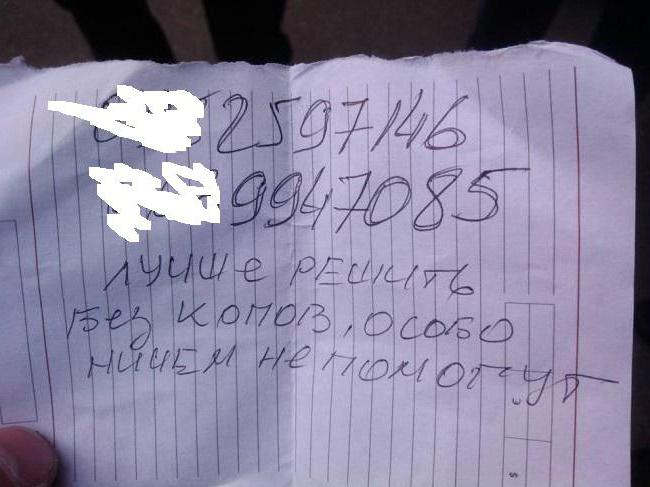 2597146
9947085
лучше решить
без копов, особо
ничем не помогут